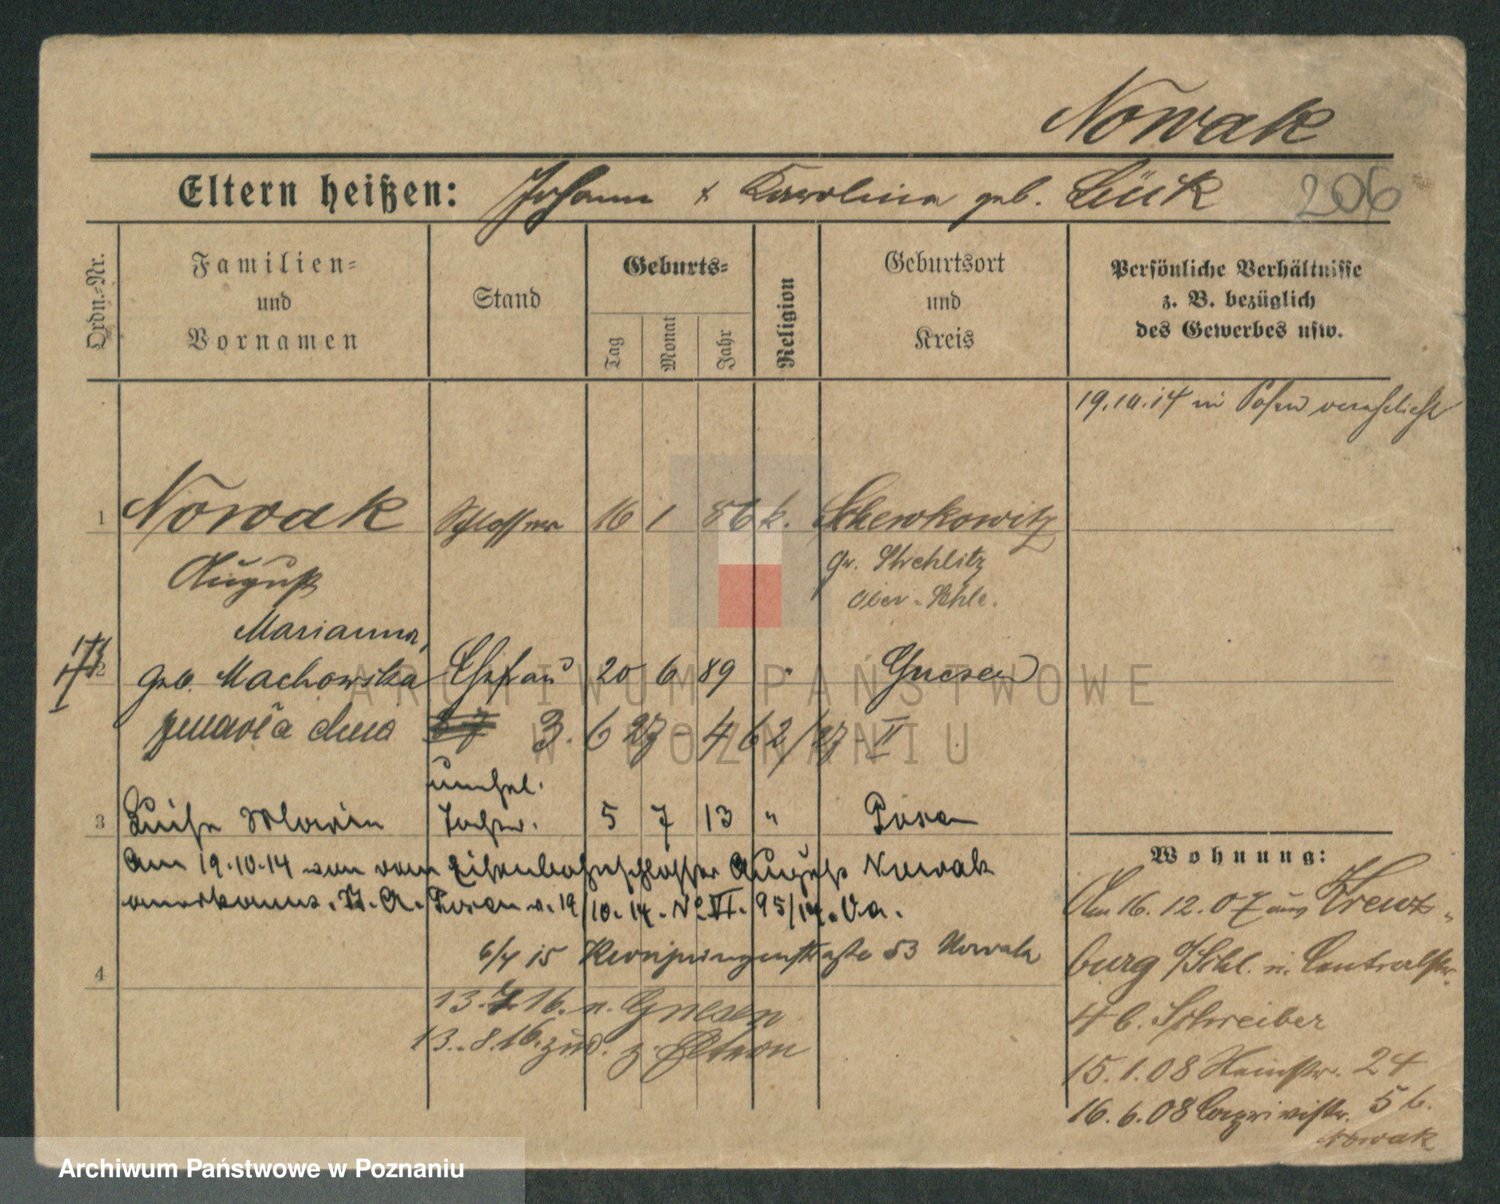 Nowak
Eltern heißen: Johann & Karolina geb. Lück 206
Ordn.-Nr.
Familien-
und
Vornamen
Stand
Geburts-
Tag
Monat
Jahr
Religion
Geburtsort
und
Kreis
Persönliche Verhältnisse
z. B. bezüglich
des Gewerbes usw.
19.10.14 in Posen verehelicht
1 Nowak Schlosser 16 1 86 k. Schewkowitz
August
Gr. Strehlitz
Ober-Schle.
Marianna,
2 geb. Machowska Ehefrau 20 6 89 " Gnesen
3. 6 27 - 4 62/27 II
unehel.
3 Luise Tochter. 5 7 13 " Posen
Am 19.10.14 von dem Eisenbahnschlosser August Nowak
anerkannt. St. A. Posen v. 19/10.14. No VI. 95/14. Va.
6/4 15 Kronprinzenstraße 53 Nowak
4
13.7.16. n. Gnesen
13.8.16. zur. z. Eltern
Wohnung:
Am 16.12.07 aus Kreuz-
burg O/Schl. n. Centralstr.
4 b. Schreiber
15.1.08 24
16.6.08 5 b.
Nowak
ARCHIWUM PAŃSTWOWE
W POZNANIU
Archiwum Państwowe w Poznaniu